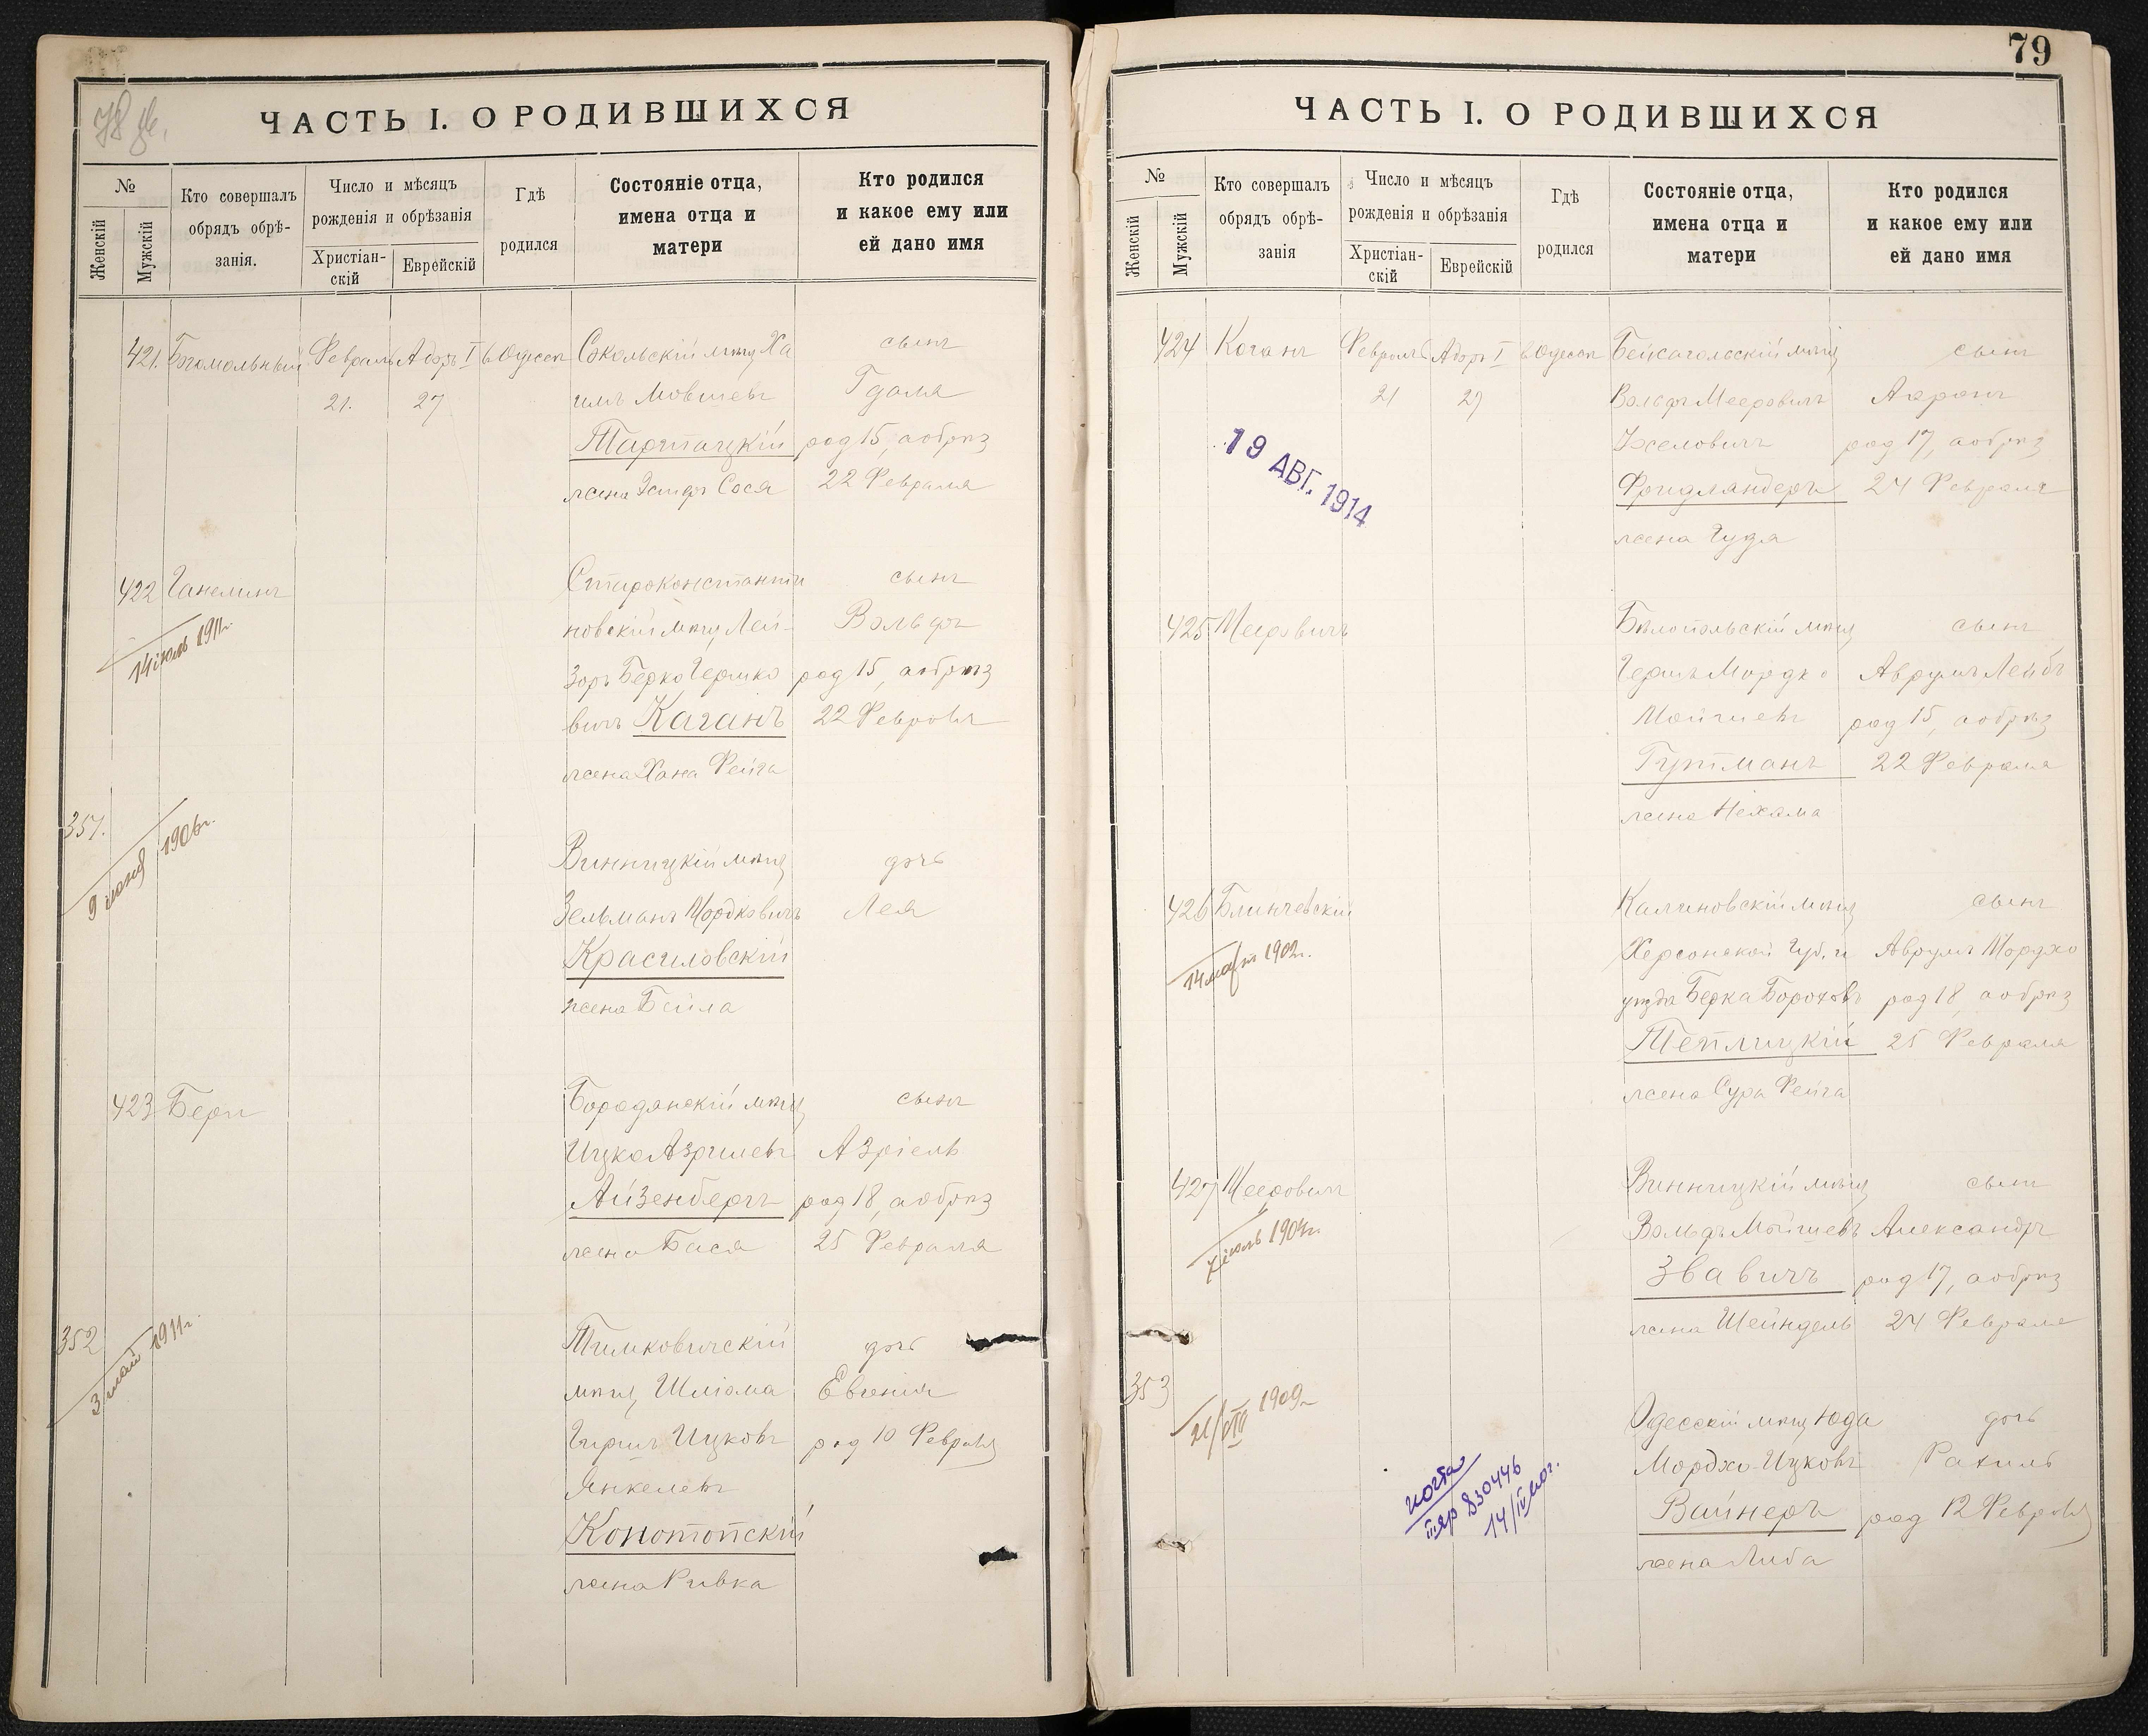 78 об.
ЧАСТЬ I. О РОДИВШИХСЯ
№
Женскій
Мужскій
Кто совершалъ
обрядъ обрѣ-
занія.
Число и мѣсяцъ
рожденія и обрѣзанія
Христіан-
скій
Еврейскій
Гдѣ
родился
Состояніе отца,
имена отца и
матери
Кто родился
и какое ему или
ей дано имя
421. Богомольный Февраль Адаръ I в Одессѣ Сокольскій мѣщ Ха сынъ
21. 27 имъ Мовшевъ Гдаля
Тартацкій род 15, а обрѣз
жена Эстеръ Сося 22 Февраля
422 Ганелинъ Староконстанти сынъ
14 іюль 1911г. новскій мѣщ Лей- Вольфъ
зоръ Берко Гершко род 15, а обрѣз
вичъ Каганъ 22 Февраля
жена Хана Фейга
351.
9 іюня 1906г.
Винницкій мѣщ дочь
Зельманъ Мордковичъ Лея
Красиловскій
жена Бейла
423 Бери Бородянскій мѣщ сынъ
Ицко Азрилевъ Азріель
Айзенбергъ род 18, а обрѣз
жена Бася 25 Февраля
352
3 май 1911г.
Тимковичскій дочь
мѣщ Шліома Евгенія
Гиршъ Ицковъ род 10 Февраля
Янкелевъ
Конотопскій
жена Ривка
79
ЧАСТЬ I. О РОДИВШИХСЯ
№
Женскій
Мужскій
Кто совершалъ
обрядъ обрѣ-
занія
Число и мѣсяцъ
рожденія и обрѣзанія
Христіан-
скій
Еврейскій
Гдѣ
родился
Состояніе отца,
имена отца и
матери
Кто родился
и какое ему или
ей дано имя
424 Коганъ Февраль Адаръ I в Одессѣ Бейсагольскій мѣщ сынъ
21 27 Вольфъ Мееровичъ Ааронъ
Хселовичъ род 17, а обрѣз
Фридляндеръ 24 Февраля
жена Гудя
19 АВГ. 1914
425 Мееровичъ Бѣлопольскій мѣщ сынъ
Гершъ Мордко Аврумъ Лейбъ
Мойшевъ род 15, а обрѣз
Гутманъ 22 Февраля
жена Нехама
426 Блинчевскій Калиновскій мѣщ сынъ
14 март 1902г. Херсонской Губ. и Аврумъ Мордко
уѣзда Берка Бороховъ род 18, а обрѣз
Теплицкій 25 Февраля
жена Сура Фейга
427 Мееровичъ Винницкій мѣщ сынъ
7 іюль 1904г. Вольфъ Мойшевъ Александръ
Звавичъ род 17, а обрѣз
жена Шейндель 24 Февраля
353
21/VIII 1909г.
Одесскій мѣщ Юда дочь
Мордхо Ицковъ Рахиль
Вайнеръ род 12 Февраля
жена Либа